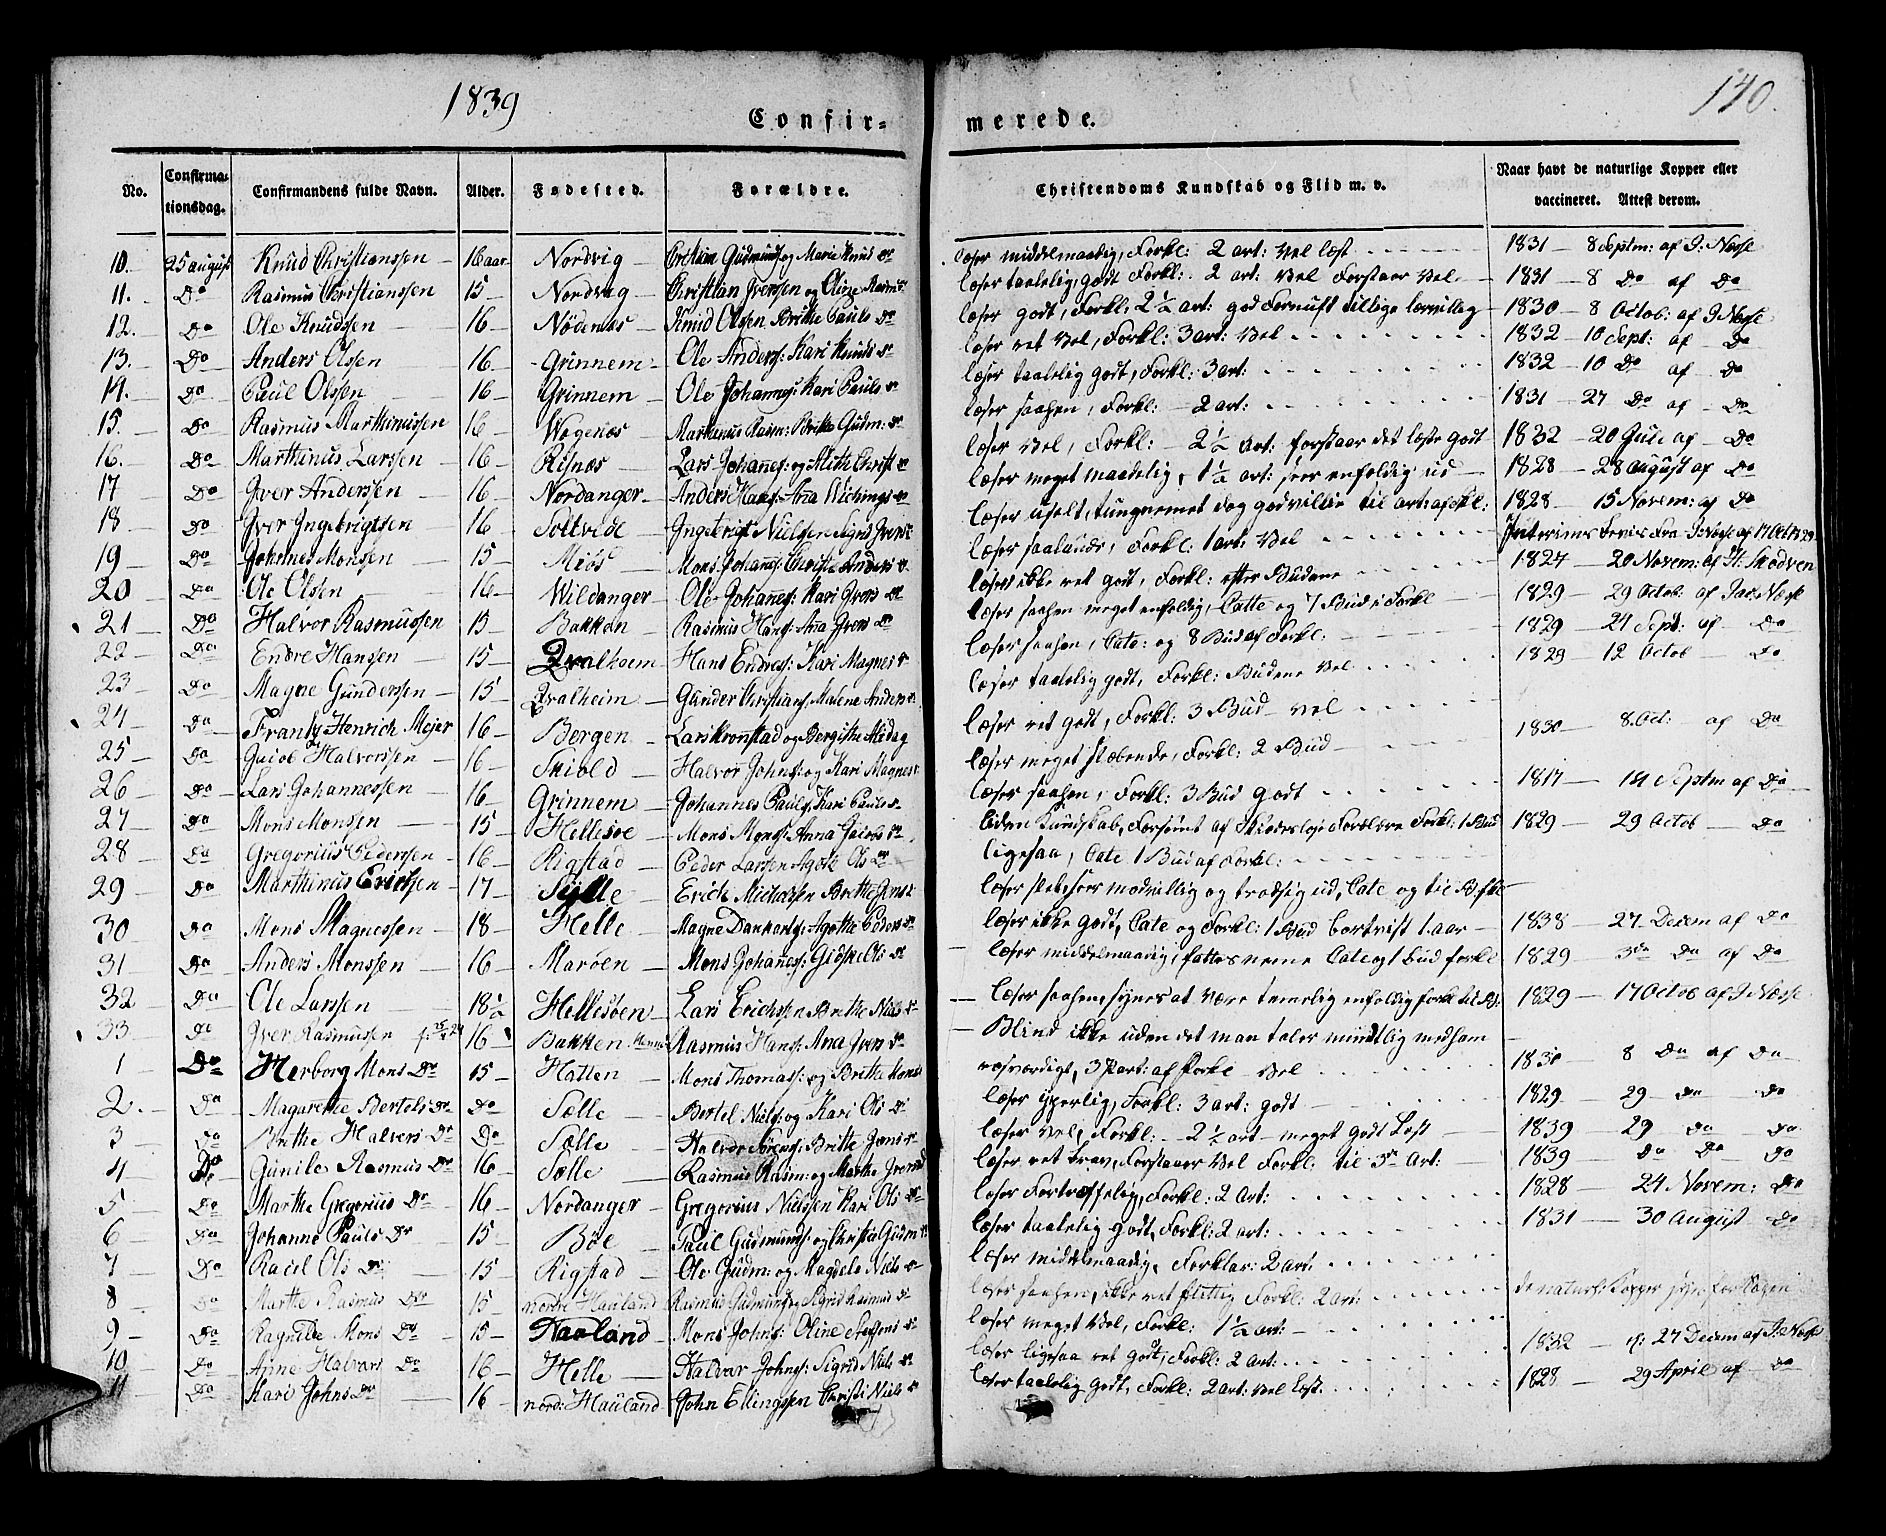 1839
140.
Confir-
merede.
No. Confirmationsdag. Confirmandens fulde Navn. Alder. Fødested. Forældre. Christendoms Kundskab og Flid m. v. Naar havt de naturlige Kopper eller vaccineret. Attest derom.
10. 25 august Knud Christianssen 16 aar Nordvig Christian Gudmunds: og Marie Knuds Dr læser middelmaadig, Forkl: 2 art: vel læst 1831 8 Septm: af J: Næsse
11. Do Rasmus Christianssen 15 Nordvig Christian Iverssen og Oline Rasm: læser taalelig godt Forkl: 2 art: vel Forstaaer vel 1831 8 Do af Do
12. Do Ole Knudssen 16 Nødenæs Knud Olssen Brithe Pauls Dr læser godt, Forkl: 2 1/2 art: god Fornuft tillige lærvillig 1830 8 Octob: af J Næsse
13. Do Anders Olssen 16 Grinnem Ole Anderss: Kari Knuds Dr læser ret vel, Forkl: 3 art: vel 1832 10 Sept: af Do
14. Do Paul Olssen 16 Grinnem Ole Johannes: Kari Pauls Dr læser taalelig godt, Forkl: 3 art: 1832 10 Do af Do
15. Do Rasmus Marthinussen 16 Wogenæs Marthinus Rasm: Brithe Gudm: Dr læser saahen, Forkl: 2 art: 1831 27 Do af Do
16. Do Marthinus Larssen 16 Risnæs Lars Johanes: og Alithe Christ: Dr læser vel, Forkl: 2 1/2 art: forstaar det læste godt 1832 20 Juli af Do
17 Do Iver Anderssen 16 Nordanger Anders Hans: Ana Wichings Dr læser meget maadelig, 1 1/2 art: seer enfoldig ud 1828 28 August af Do
18 Do Iver Ingebrigtsen 16 Soltvedt Ingebrigt Nielsen Sigrid Ivers Dr læser uselt, tungnemet dog godvillig til art: af Fkl: 1828 15 Novem: af Do
19 Do Johannes Monssen 15 Miøs Mons Johans: Christi Anders Dr læser saalunde, Forkl: 1 art: vel Interims Bevis fra J: Næsse af 17 Oct 1829
20 Do Ole Olsen 16 Wildanger Ole Johanes: Kari Ivers Dr læser ikke ret godt, Forkl: efter Budene 1824 20 Novem: af H: Skodven
21 Do Halvor Rasmussen 15 Bakken Rasmus Hans: Ana Ivers Dr læser saahen meget enfoldig, Catte og 7 Bud i Forkl 1829 29 Octob: af Jac: Næsse
22 Do Endre Hanssen 15 Qvalheim Hans Endres: Kari Magnes Dr læser saahen, Cate: og 8 Bud af Forkl: 1829 24 Sept: af Do
23 Do Magne Gunderssen 15 Qvalheim Gunder Christians: Malene Anders Dr læser taalelig godt, Forkl: Budene vel 1829 12 Octob Do
24 Do Frantz Henrich Mejer 16 Bergen Lars Kronstad og Bergithe Midag læser ret godt, Forkl: 3 Bud vel 1830 8. Oct: af Do
25 Do Guiob Halvorssen 16 Skiold Halvor Johns: og Kari Magnes læser meget stæbende, Forkl: 2 Bud
26 Do Lars Johannessen 16 Grinnem Johannes Pauls: Kari Pauls Dr læser saahen, Forkl: 3 Bud godt 1817 14 Septm af Do
27 Do Mons Monsen 15 Hellesøe Mons Monss: Anna Jacobs Dr liden Kundskab, Forsømt af skiødesløse Forældre Forkl: 1 Bud 1829 29 Octob Do
28 Do Gregorius Pederssen 16 Rigstad Peder Larssen Agete Ols Dr ligesaa, Cate 1 Bud af Forkl:
29 Do Marthinus Erichsen 17 Sylte Erich Michelssen Brithe Jens Dr læser modvillig og trodsig ud, Cate og til
30 Do Mons Magnessen 18 Helle Magne Dankerts: Agethe Peders Dr læser ikke godt, Cate og Forkl: 1 Bud bortvist 1 aar 1838 27 Decem af Do
31 Do Anders Monssen 16 Marøen Mons Johanes: Giøske Ols Dr læser middelmaadig, fattes nemme Cate og 1 bud forkl 1829 3de Do af Do
32 Do Ole Larssen 18 1/2 Hellesøen Lars Erichssen Brithe Niels Dr læser saahen, synes at være temelig enfoldig forkl til 1829 17 Octob af J: Næsse
33 Do Iver Rasmussen 16 Bakken Rasmus Hans: Ana Ivers Dr Blind ikke uden det man taler mundtlig med ham
1 Do Herborg Mons Dr 15 Hatten Mons Thomass: og Brithe Mons rosværdigt, 3 Part: af Forkl vel 1830 8 Do af Do
2. Do Magarethe Bertels Dr Do Sælle Bertel Niels: og Kari Ols Dr læser yperlig, Forkl: 3 art: godt 1829 29 Do Do
3 Do Brithe Halvors Dr Do Sælle Halvor Sørens: Brithe Jens Dr læser vel, Forkl: 2 1/2 art meget godt Læst 1839 29 Do Do
4 Do Gunile Rasmus Dr 16 Sælle Rasmus Rasm: og Marthe Ivers Dr læser ret brav, Forstaaer vel Forkl: til 3die Art: 1839 Do Do Do
5 Do Marthe Gregorius Dr 16 Nordanger Gregorius Nielssen Kari Ols Dr læser Fortræffelig, Forkl: 2 art: 1828 24 Novem: Do
6 Do Johanne Pauls Dr 15 Bøe Paul Gudmunds: og Christi Gudm Dr læser taalelig godt, Forkl: 2 art: 1831 30 August Do
7 Do Raeil Ols Dr 15 Rigstad Ole Gudm: og Magdele Niels Dr læser middelmaadig, Forklar: 2 art.
8 Do Marthe Rasmus Dr 15 nordre Hauland Rasmus Gudmunds: og Sigrid Rasmus Dr læser saahen, ikke ret flittig Forkl: 2 art: de naturl: Kopper
9 Do Ragnilde Mons Dr 15 Haaland Mons Johns: Oline Steffens Dr læser meget vel, Forkl: 1 1/2 art: 1832 d: 27 Decem af J: Næsse
10 Do Ane Halvors Dr 16 Helle Halvor Johns: Sigrid Niels Dr læser ligesaa ret godt, Forkl: 2 art: 1828 29 April af Do
11 Do Kari Johns Dr 16 nord: Hauland John Ellingssen Christi Niels Dr læser taalelig godt, Forkl: 2 art: vel læst.